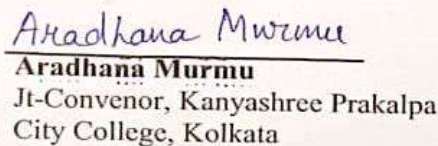 Aradhana Murmu
Aradhana Murmu
Jt-Convenor, Kanyashree Prakalpa
City College, Kolkata